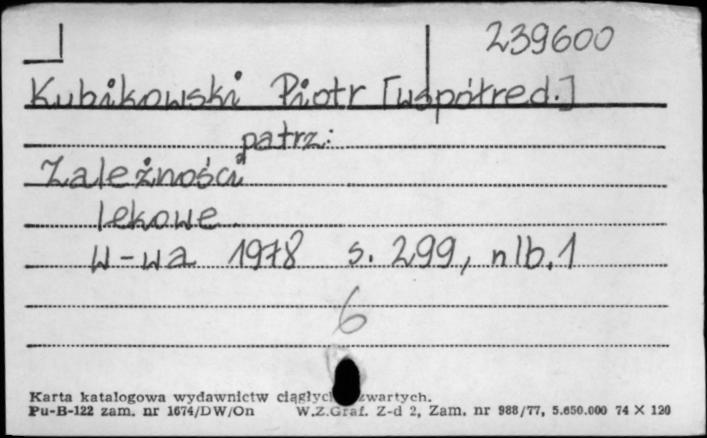 239600
Kubikowski Piotr [współred.]
patrz:
Zależności
lekowe
W-wa 1978 s. 299, nlb. 1
6
Karta katalogowa wydawnictw ciągłych zwartych.
Pu-B-122 zam. nr 1674/DW/On W.Z.Graf. Z-d 2, Zam. nr 988/77, 5.650.000 74 X 120